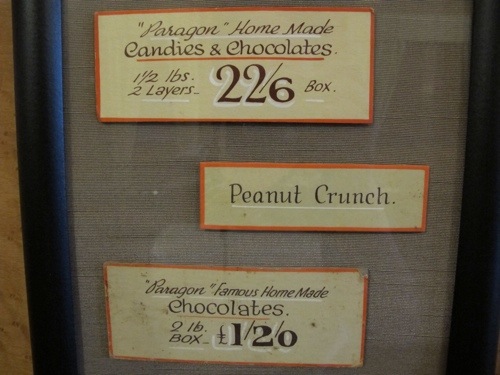 "Paragon" Home Made
Candies & Chocolates.
1½ lbs.
2 Layers_ 22/6 Box.
Peanut Crunch.
"Paragon" Famous Home Made
Chocolates.
2 lb.
BOX_ £1/2/0